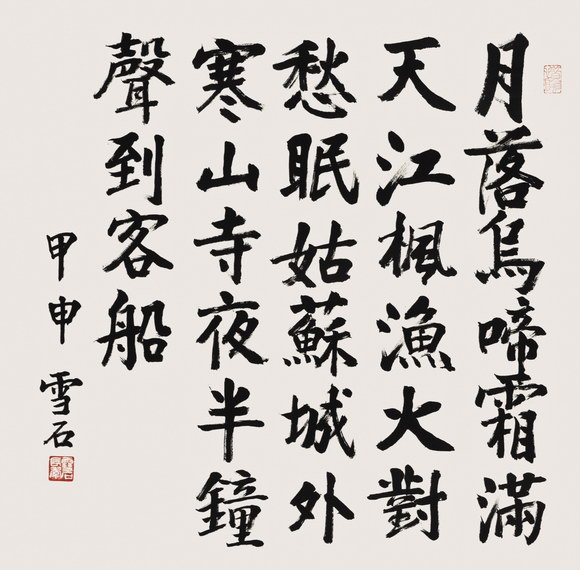 月落烏啼霜滿
天江楓漁火對
愁眠姑蘇城外
寒山寺夜半鐘
聲到客船
甲申 雪石